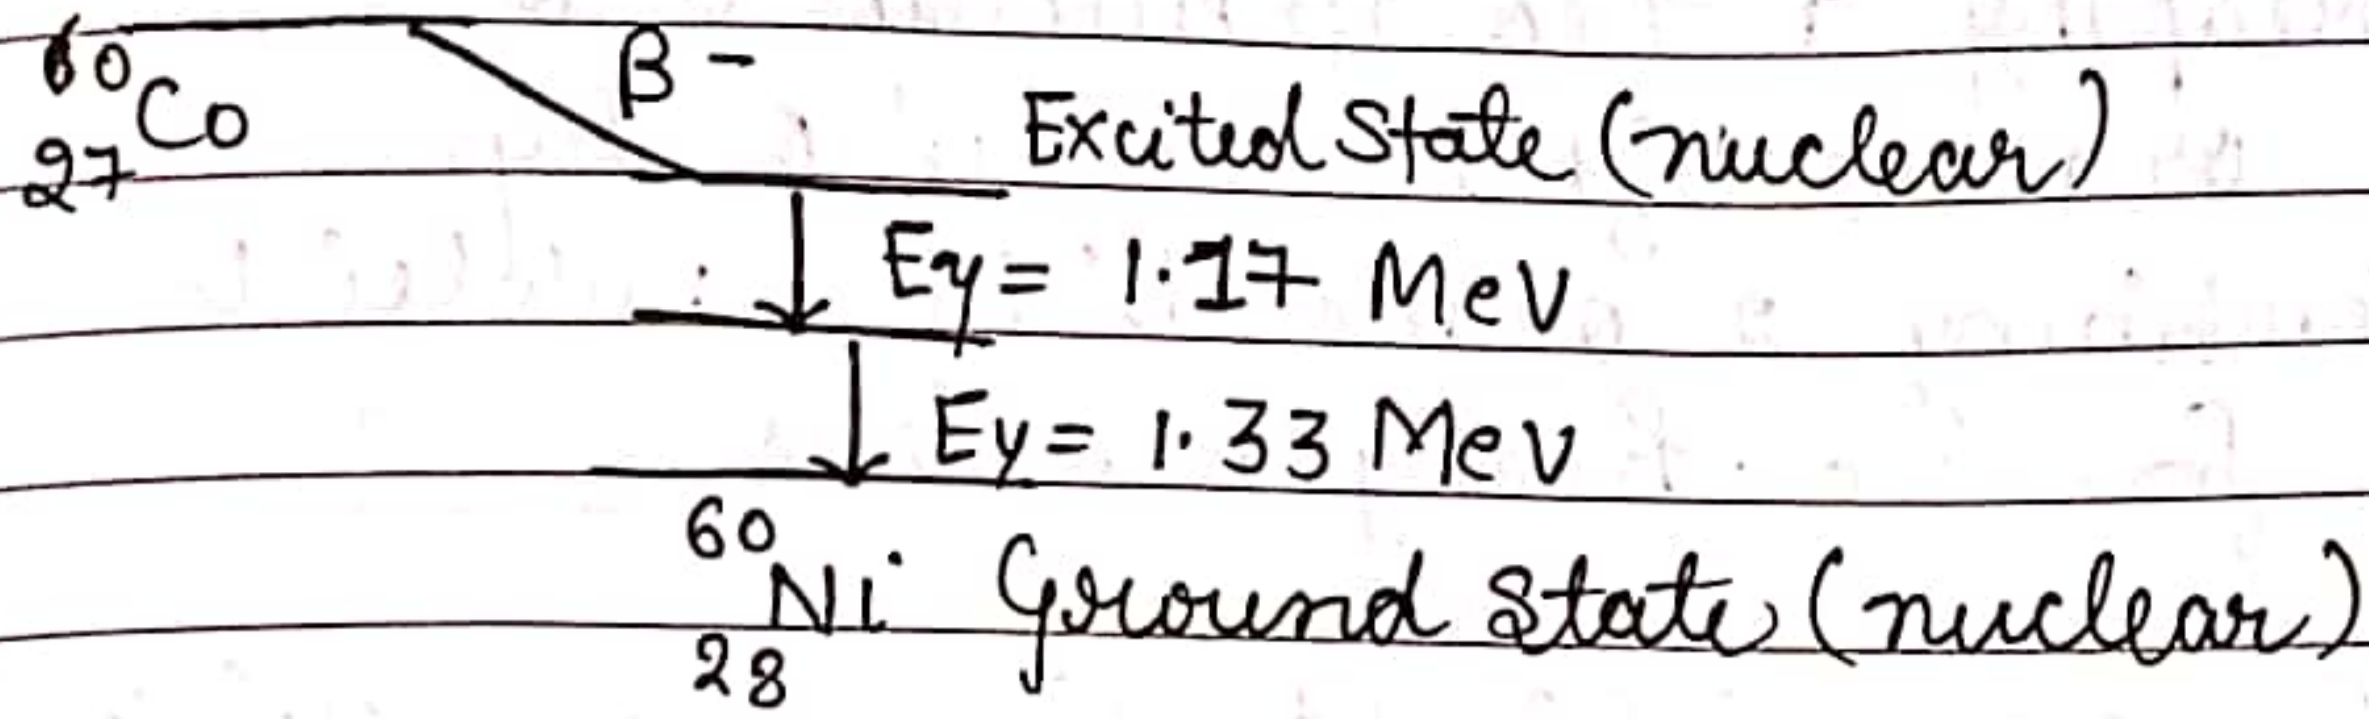 60
27 Co β-
Excited State (nuclear)
Eγ = 1.17 MeV
Eγ = 1.33 MeV
60
28 Ni Ground State (nuclear)